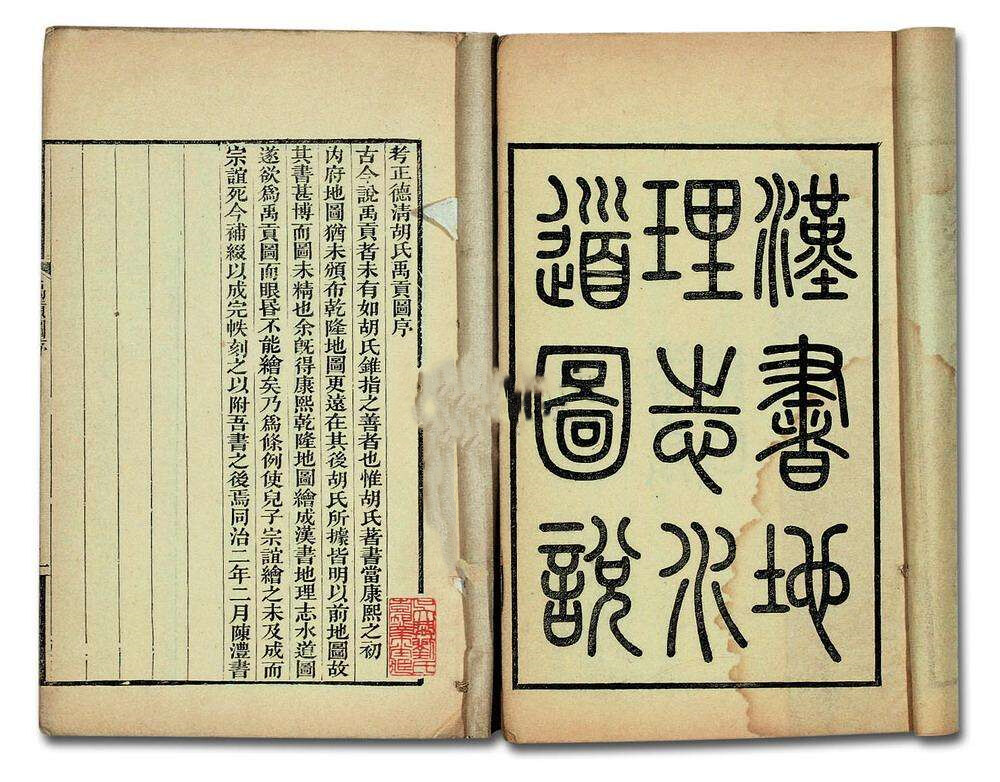 漢書地
理志水
道圖說
考正德清胡氏禹貢圖序
古今說禹貢者未有如胡氏錐指之善者也惟胡氏著書當康熙之初
內府地圖猶未頒布乾隆地圖更遠在其後胡氏所據皆明以前地圖故
其書甚博而圖未精也余既得康熙乾隆地圖繪成漢書地理志水道圖
遂欲爲禹貢圖而眼昏不能繪矣乃爲條例使兒子宗誼繪之未及成而
宗誼死今補綴以成完帙刻之以附吾書之後焉同治二年二月陳澧書
禹貢圖序